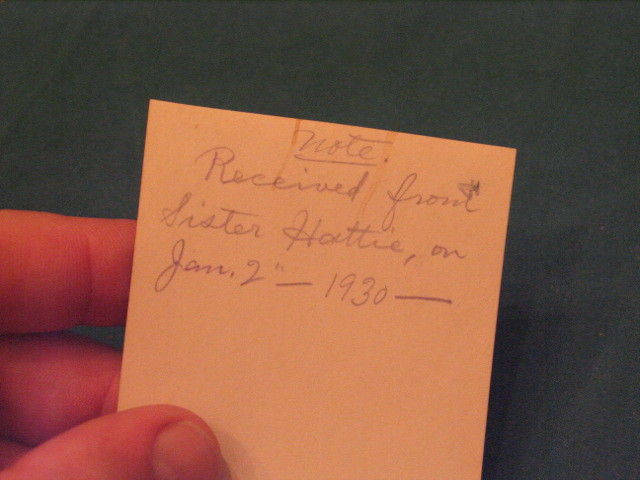 Note.
Received from
Sister Hattie, on
Jan. 2" — 1930 —